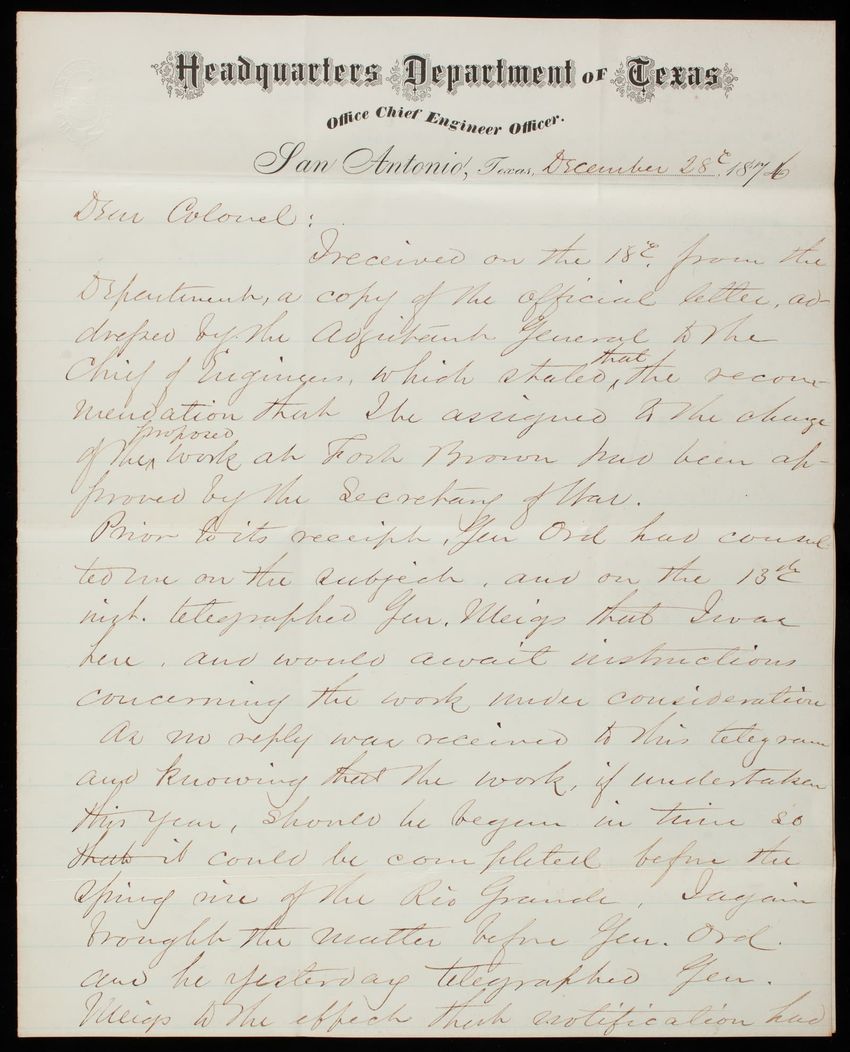 Headquarters Department of Texas
Office Chief Engineer Officer.
San Antonio, Texas, December 28th, 1876
Dear Colonel:
I received on the 18th from the
Department, a copy of the official letter, ad-
dressed by the Adjutant General to the
Chief of Engineers, which stated that the recom-
mendation that I be assigned to the charge
of the proposed work at Fort Brown had been ap-
proved by the Secretary of War.
Prior to its receipt, Gen Ord had consul
ted me on the subject, and on the 13th
inst. telegraphed Gen. Meigs that I was
here, and would await instructions
concerning the work under consideration
As no reply was received to this telegram
and knowing that the work, if undertaken
this year, should be begun in time so
that it could be completed before the
Spring rise of the Rio Grande, I again
brought the matter before Gen. Ord.
and he yesterday telegraphed Gen.
Meigs to the effect that notification had